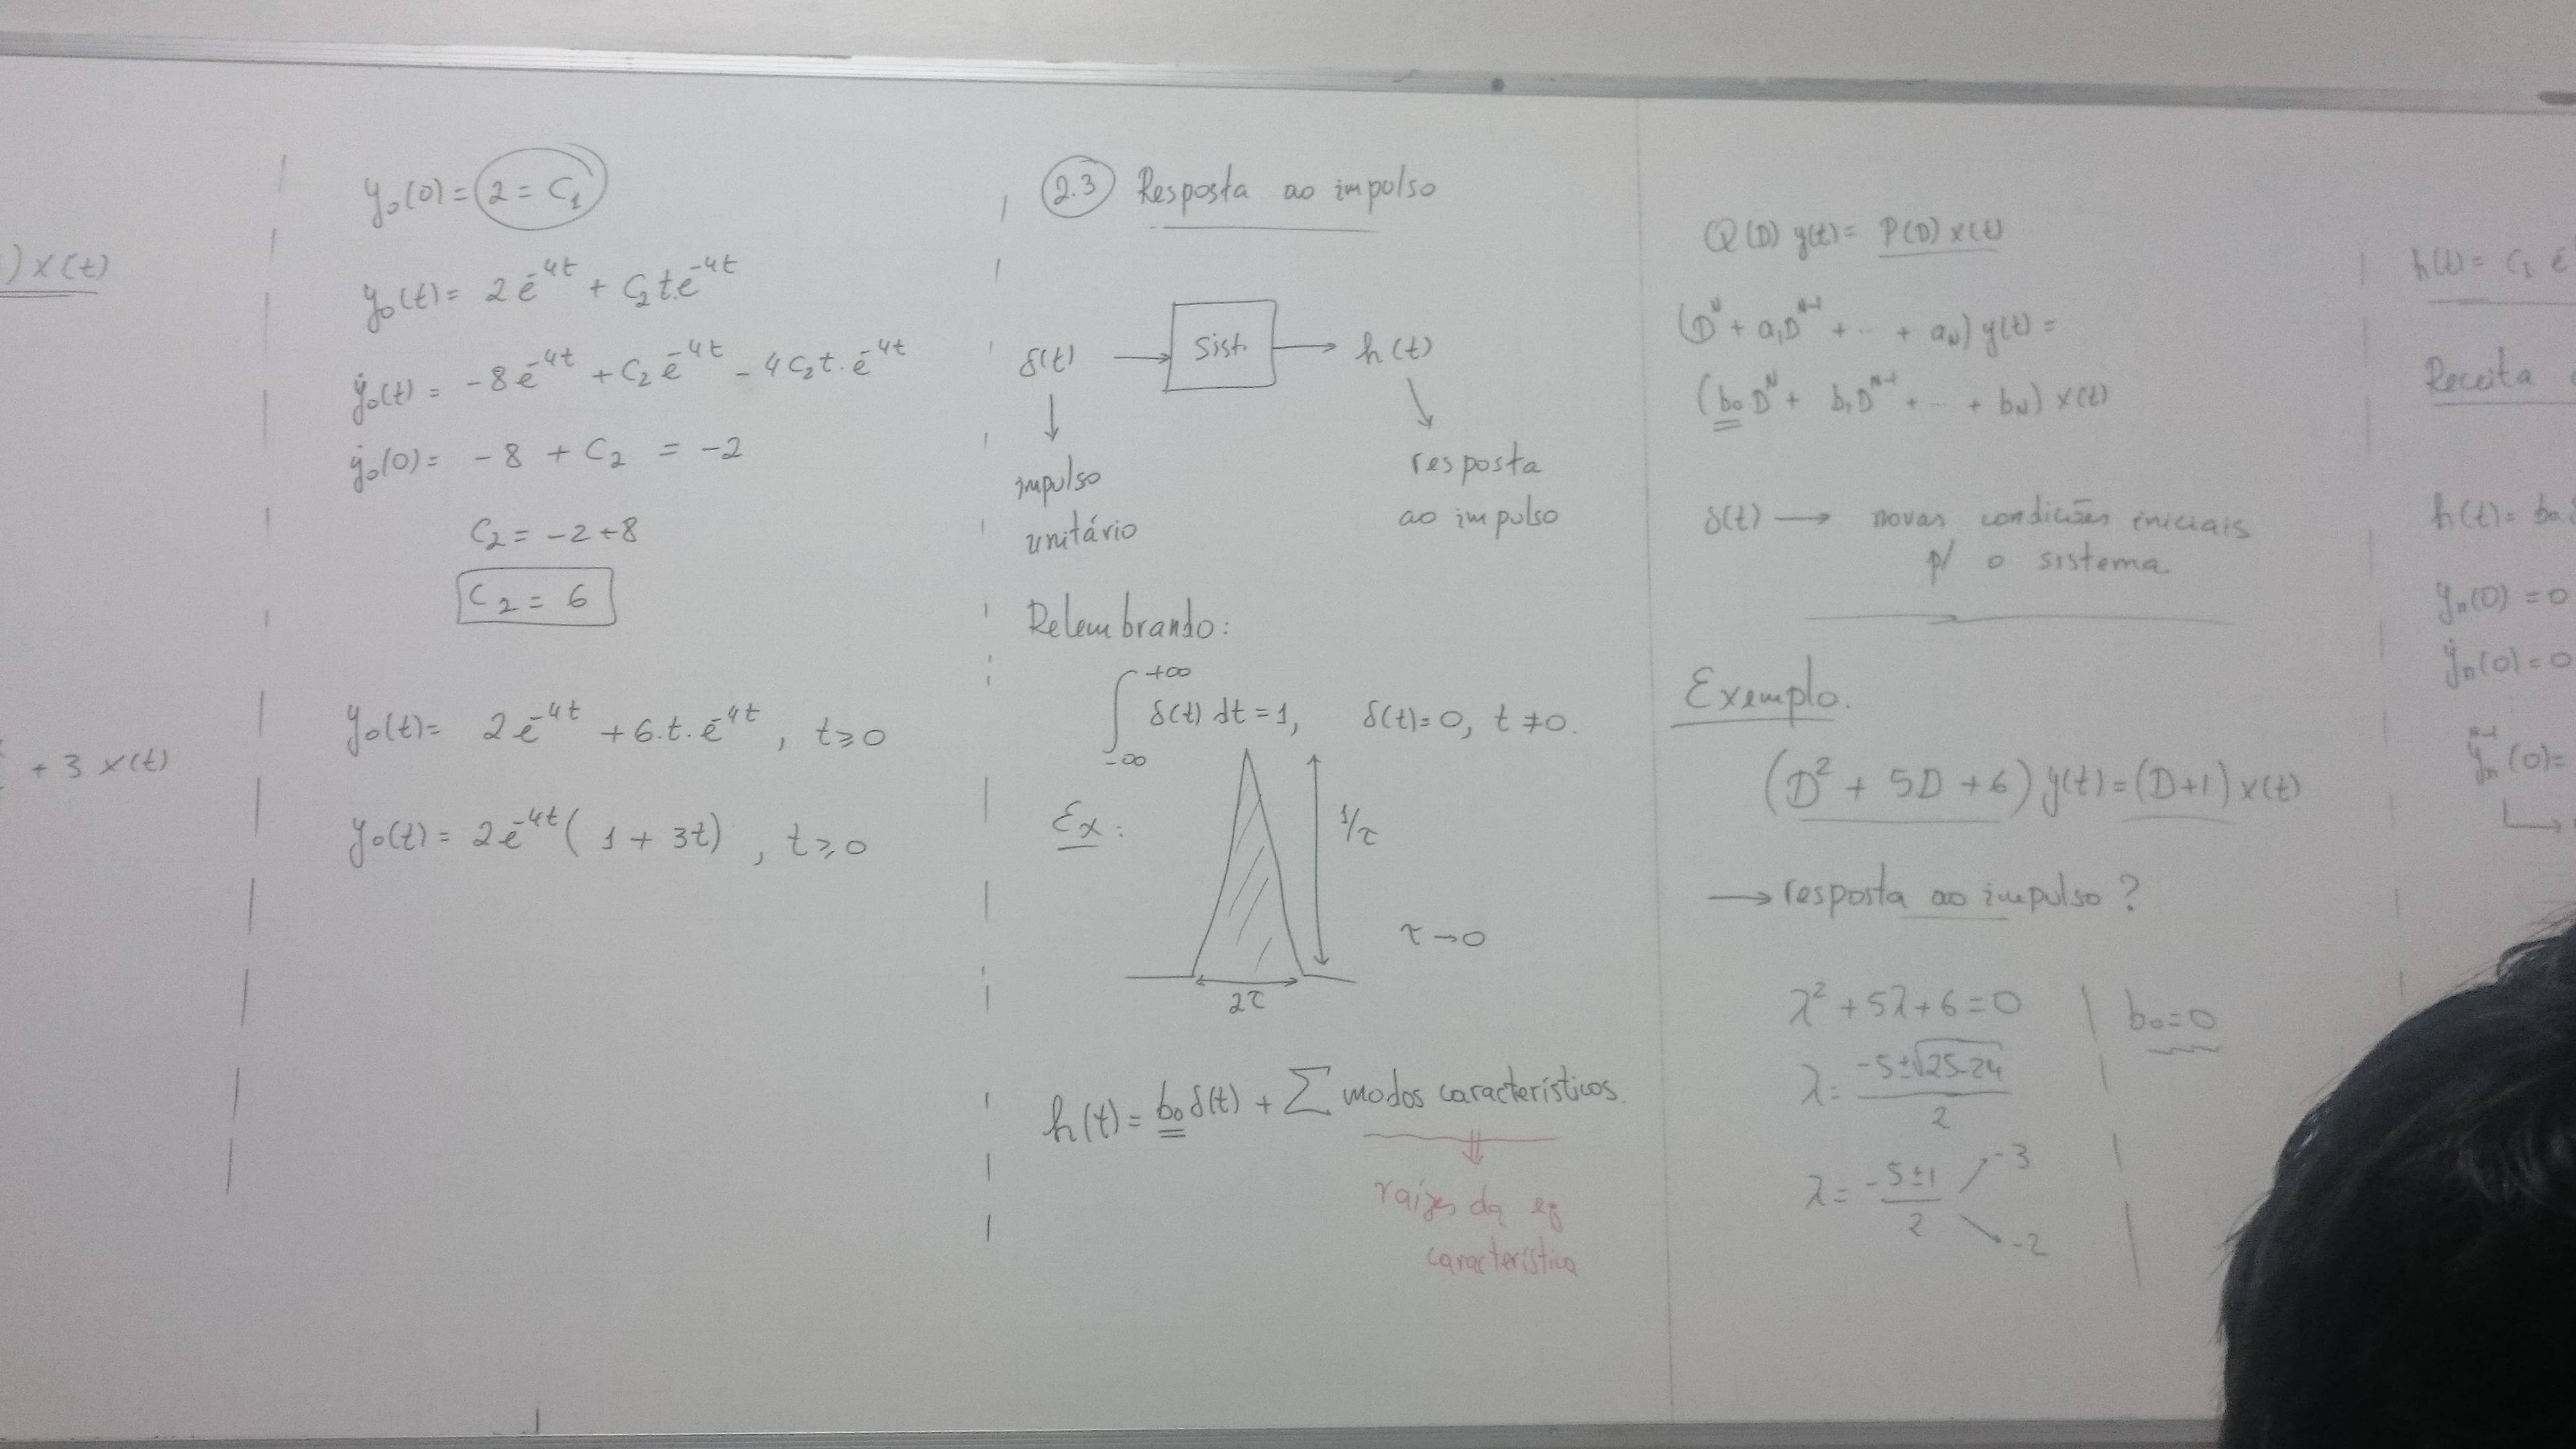 ) x(t)
+ 3 x(t)
y₀(0) = 2 = C₁
y₀(t) = 2e^-4t + C₂ t.e^-4t
ẏ₀(t) = -8e^-4t + C₂e^-4t - 4C₂t.e^-4t
ẏ₀(0) = -8 + C₂ = -2
C₂ = -2+8
C₂ = 6
y₀(t) = 2e^-4t + 6.t.e^-4t, t≥0
y₀(t) = 2e^-4t (1 + 3t), t≥0
2.3 Resposta ao impulso
δ(t) → Sist. → h(t)
impulso
unitário
resposta
ao impulso
Relembrando:
∫_-∞^+∞ δ(t) dt = 1, δ(t) = 0, t ≠ 0.
Ex:
1/τ
τ→0
2τ
h(t) = b₀δ(t) + Σ modos característicos.
raízes da eq
característica
Q(D) y(t) = P(D) x(t)
(D^N + a₁D^N-1 + ... + a_N) y(t) =
(b₀D^N + b₁D^N-1 + ... + b_N) x(t)
δ(t) → novas condições iniciais
p/ o sistema
Exemplo.
(D² + 5D + 6) y(t) = (D+1) x(t)
→ resposta ao impulso?
λ² + 5λ + 6 = 0
b₀=0
λ = (-5±√25-24)/2
λ = (-5±1)/2
-3
-2
h(t) = C₁ e
Receita
h(t) = b₀
yₙ(0) = 0
ẏₙ(0) = 0
yₙ^n-1(0) =